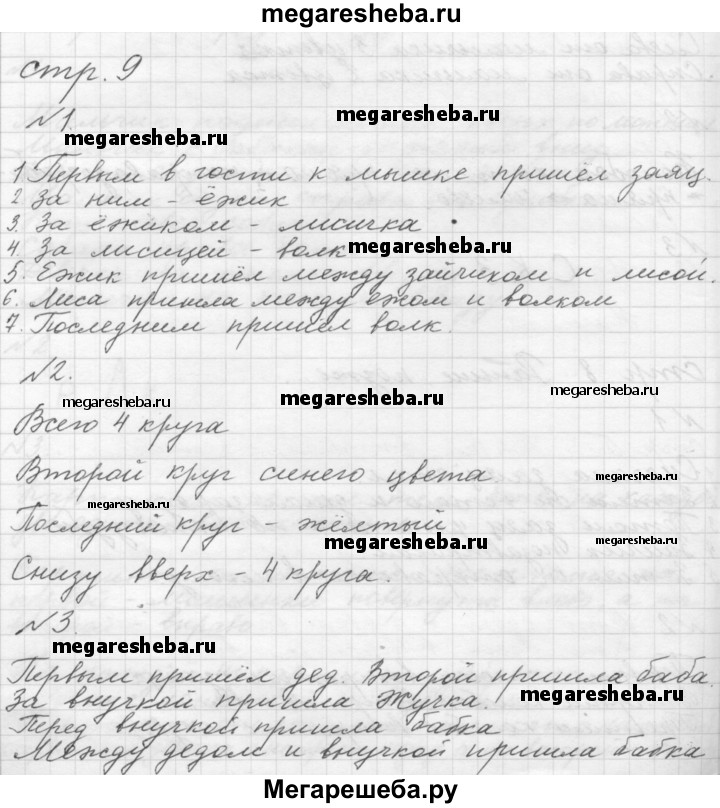 megaresheba.ru
стр. 9
№1.
megaresheba.ru
megaresheba.ru
1. Первым в гости к мышке пришёл заяц.
2 За ним - ёжик
3. За ёжиком - лисичка
4. За лисицей - волк
megaresheba.ru
5. Ёжик пришёл между зайчиком и лисой.
6. Лиса пришла между ежом и волком
7. Последним пришёл волк.
№2.
megaresheba.ru
megaresheba.ru
megaresheba.ru
Всего 4 круга
Второй круг синего цвета
megaresheba.ru
megaresheba.ru
megaresheba.ru
Последний круг - жёлтый
megaresheba.ru
Снизу вверх - 4 круга.
№3.
megaresheba.ru
Первым пришёл дед. Второй пришла баба.
За внучкой пришла Жучка.
megaresheba.ru
Перед внучкой пришла бабка
Между дедом и внучкой пришла бабка
Мегарешеба.ру